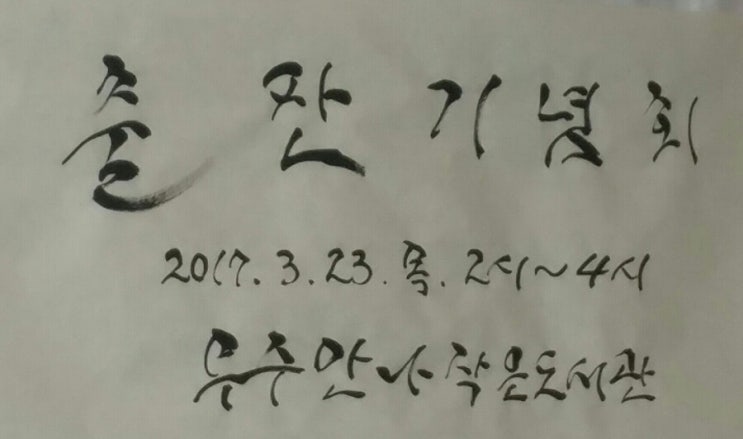 출판기념회
2017. 3. 23. 목. 2시~4시
우주만나작은도서관